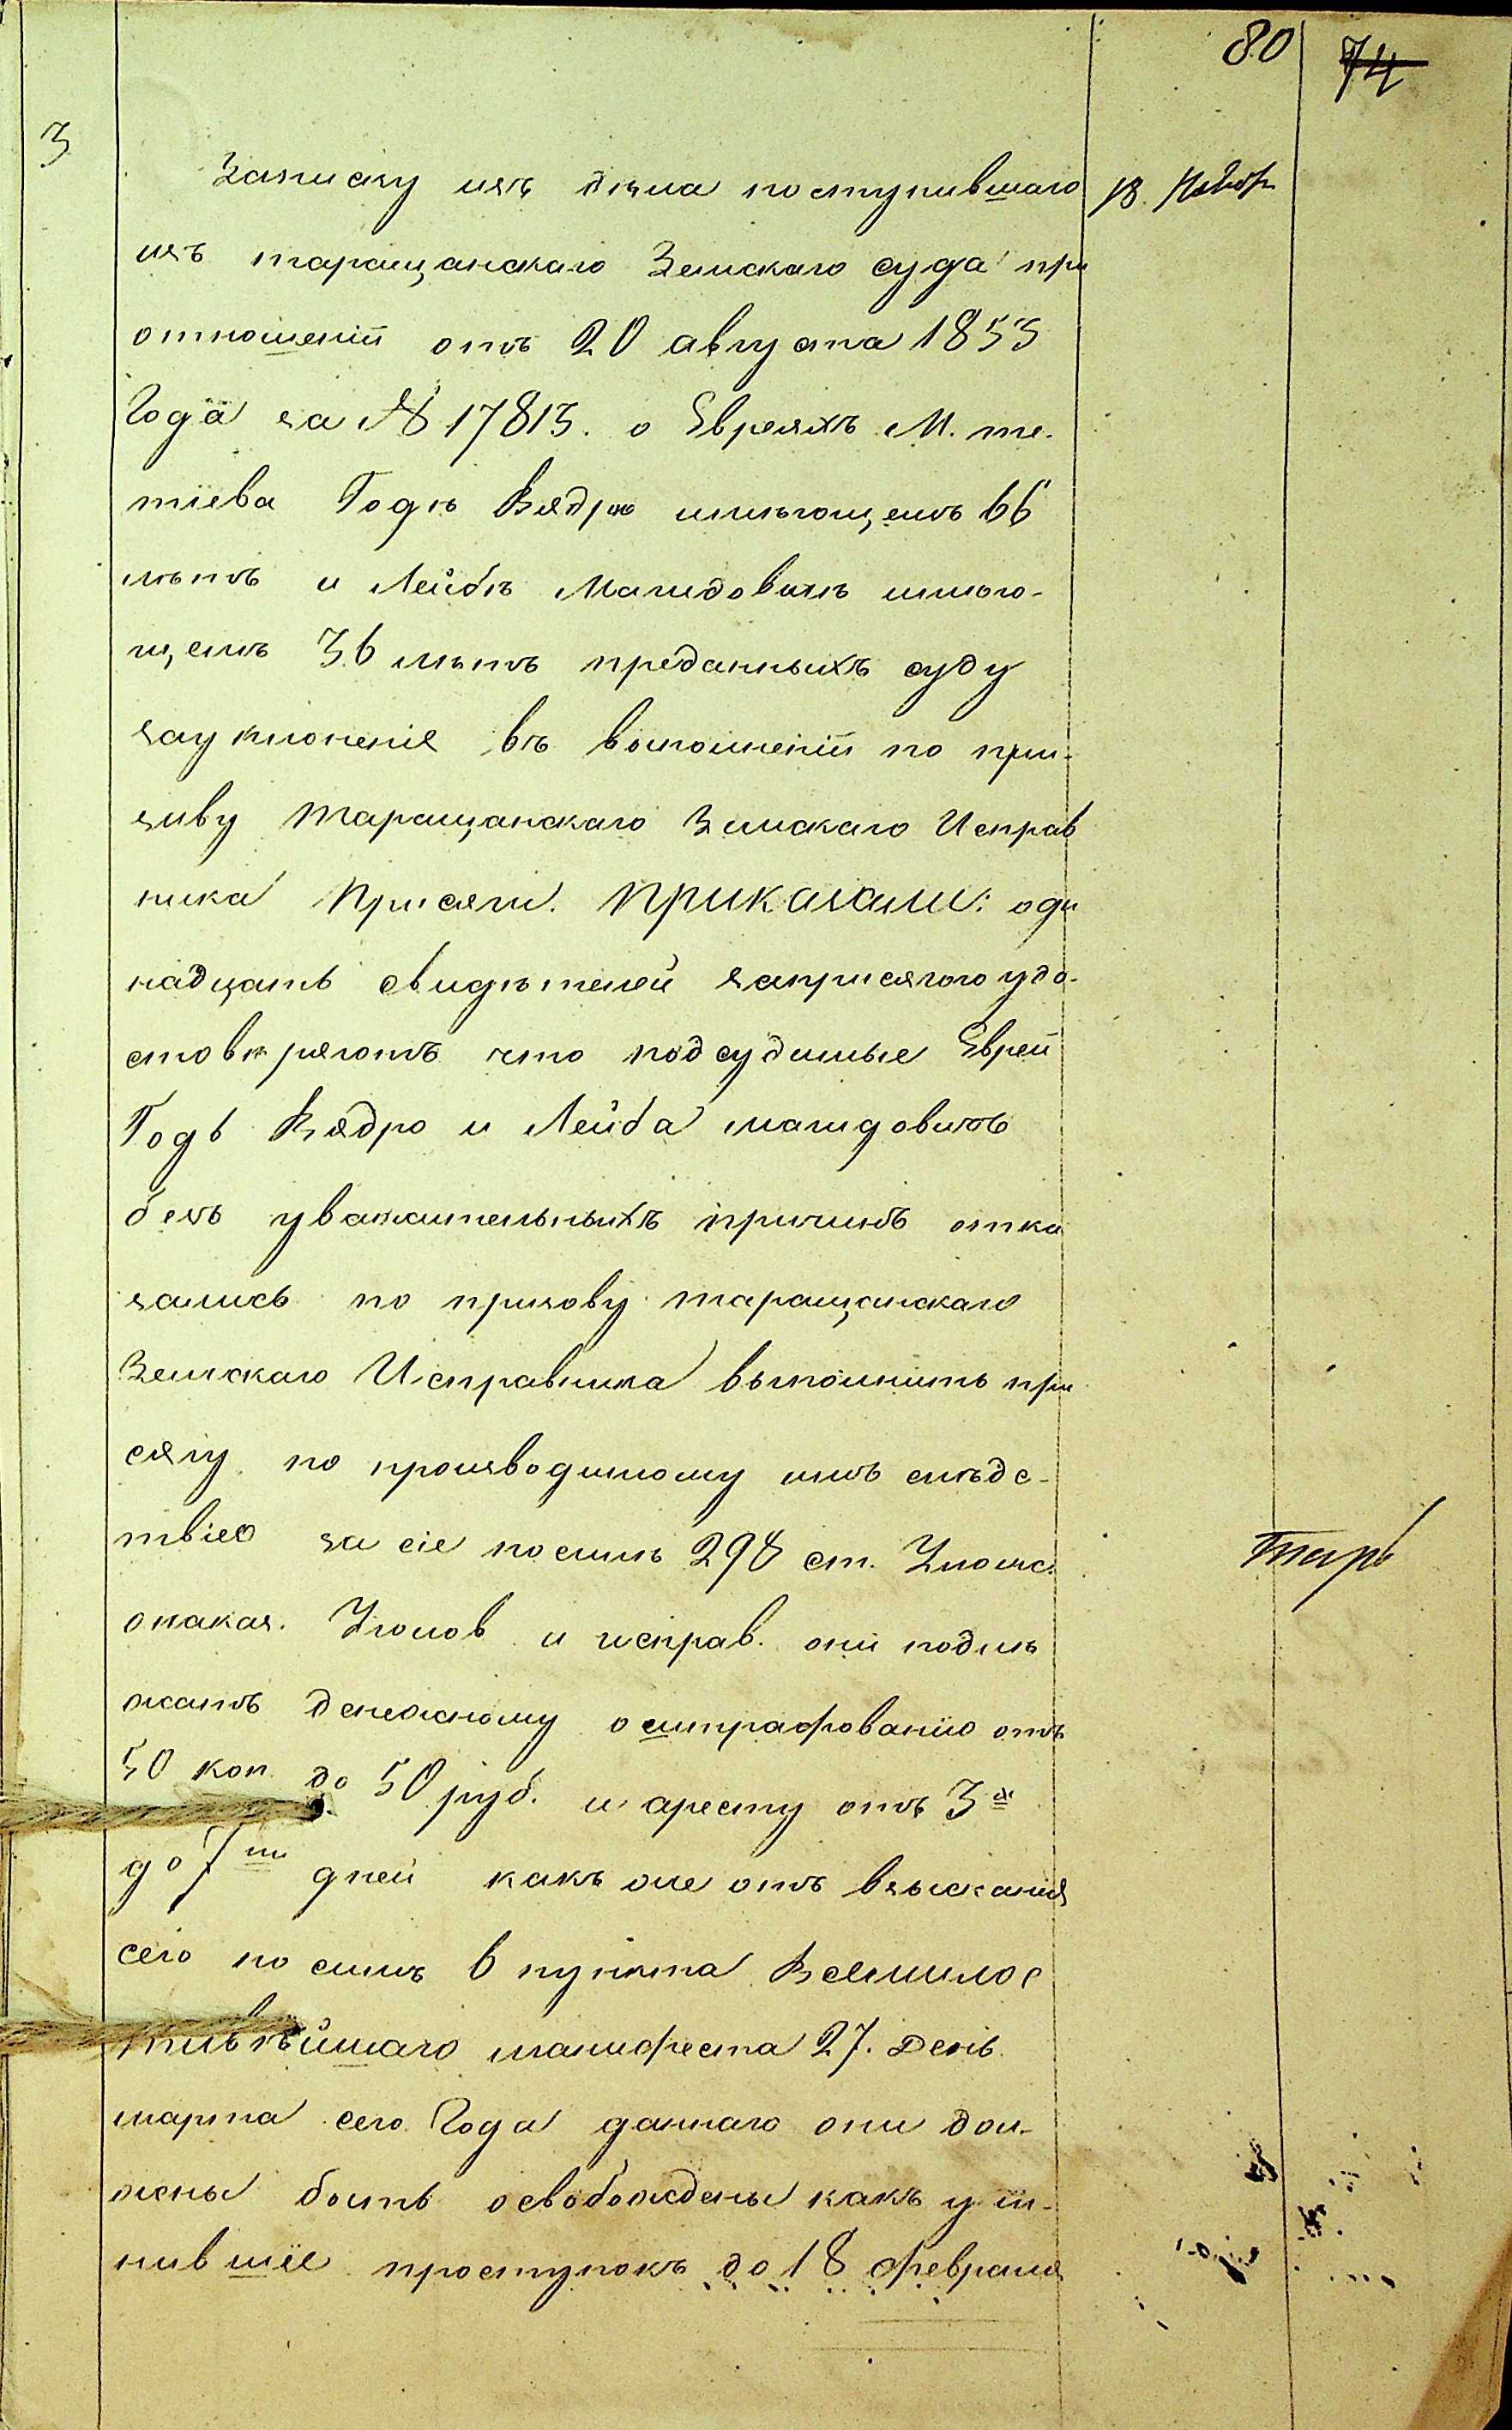 80 74
3
Записку изъ дѣла поступившаго
изъ таращанскаго Земскаго суда при
отношеніи отъ 20 августа 1853
Года за № 17813. о Евреяхъ М. те-
тіева Годѣ Вядро имѣющемъ 66
лѣтъ и Лейбѣ Магидовичѣ имѣю-
щемъ 36 лѣтъ преданныхъ суду
зауклоненія въ выполненіи по при-
зиву Таращанскаго Земскаго Исправ
ника Присяги. Приказали: оди
надцать свидѣтелей заприсягою удо-
стовѣряютъ что подсудимые Евреи
Годь Вядро и Лейба магидовичъ
безъ уважительныхъ причинъ отка
зались по призову таращанскаго
Земскаго Исправника выполнить при
сягу по производимому имъ слѣдс-
твію за сіе посилѣ 298 ст. Улож.
онаказ. Уголов и исправ. они подле
жатъ денежному оштрафованію отъ
50 коп. до 50 руб. и аресту отъ 3х
до 7ми дней какъ оле отъ взысканія
сего по силѣ 6 пункта Всемилос
тивѣйшаго манифеста 27. День
марта сего Года даннаго они дол-
жны быть освобождены какъ учи-
нившіе проступокъ до 18 февраля